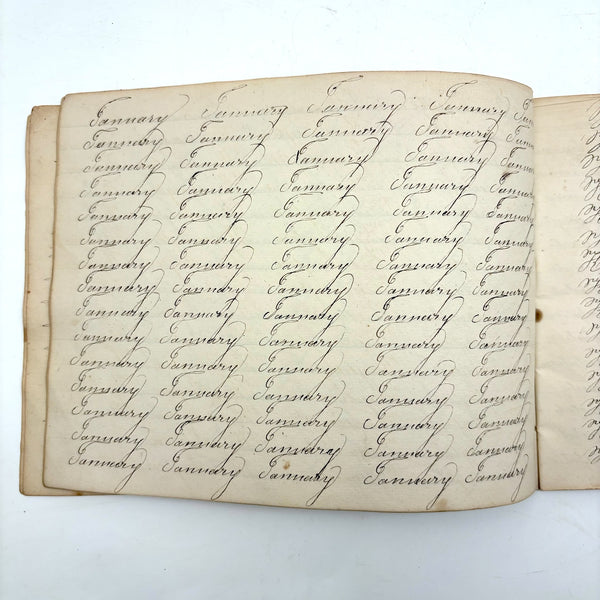 January January January January Jan
January January January January Janu
January January January January January
January January January January January
January January January January January
January January January January January
January January January January January
January January January January January
January January January January January
January January January January January
January January January January January
January January January January January
January January January January January
January January January January January
January January January January January